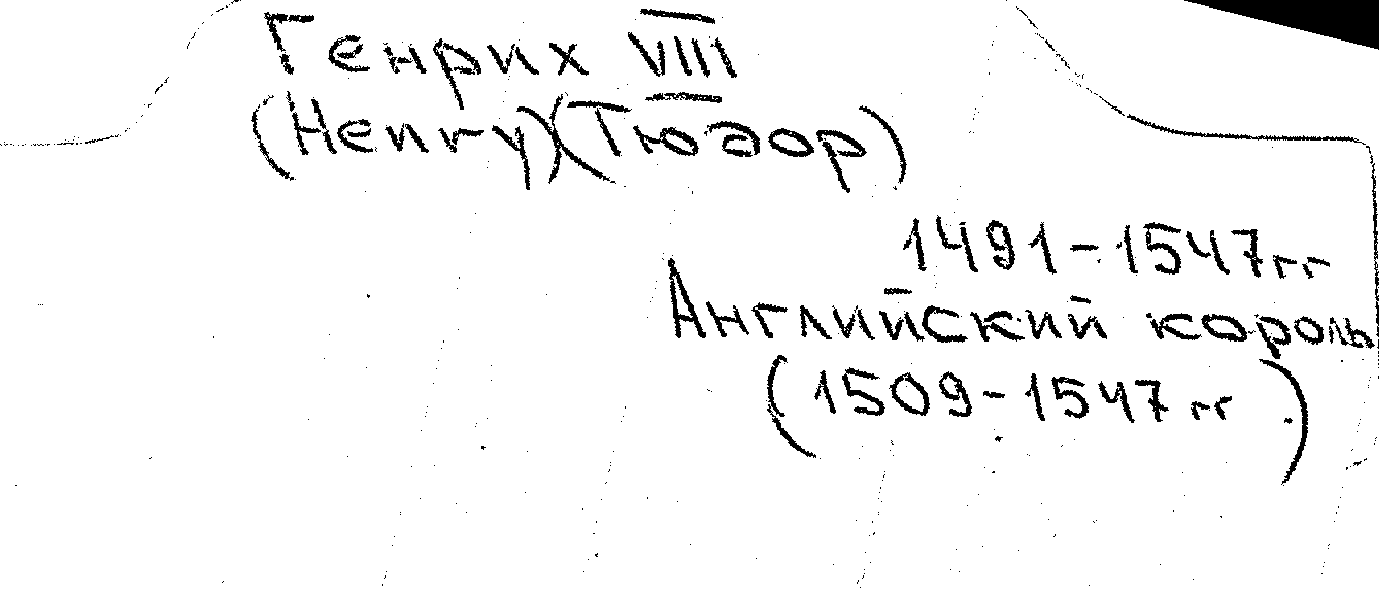 Генрих VIII
(Henry)(Тюдор)
1491-1547гг
Английский король
(1509-1547 гг)